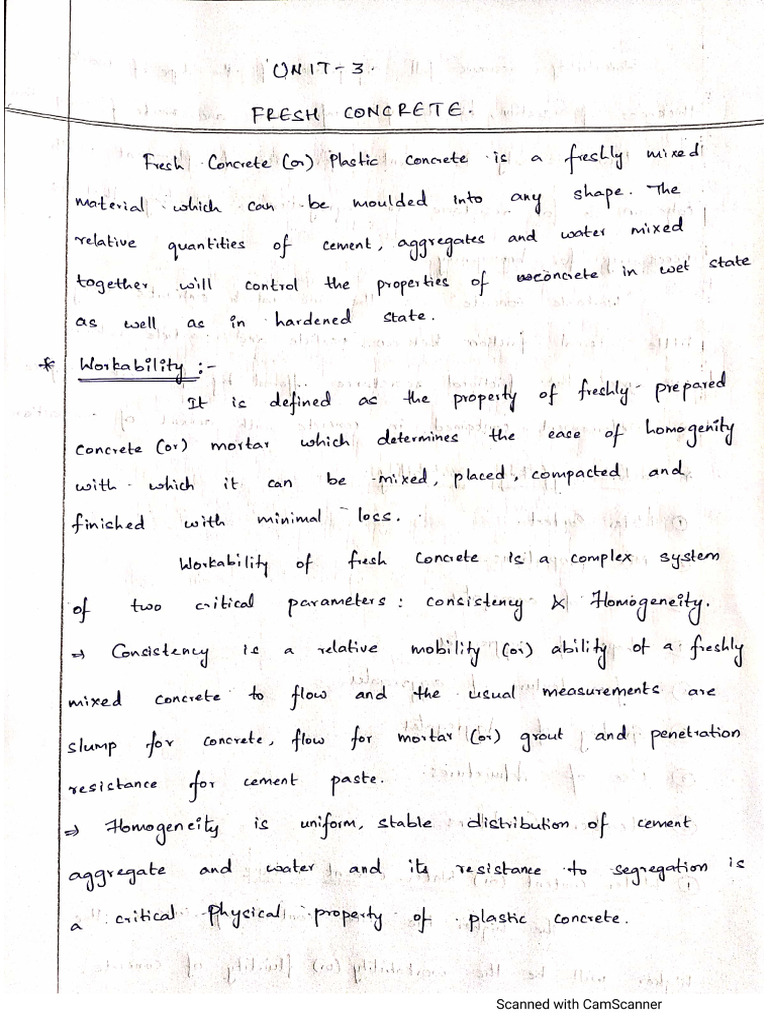 UNIT-3.
FRESH CONCRETE.
Fresh Concrete (or) Plastic concrete is a freshly mixed
material which can be moulded into any shape. The
relative quantities of cement, aggregates and water mixed
together, will control the properties of concrete in wet state
as well as in hardened state.
* Workability :-
It is defined as the property of freshly prepared
concrete (or) mortar which determines the ease of homogenity
with which it can be mixed, placed, compacted and
finished with minimal loss.
Workability of fresh concrete is a complex system
of two critical parameters: consistency & Homogeneity.
⇒ Consistency is a relative mobility (or) ability of a freshly
mixed concrete to flow and the usual measurements are
slump for concrete, flow for mortar (or) grout and penetration
resistance for cement paste.
⇒ Homogeneity is uniform, stable distribution of cement
aggregate and water and its resistance to segregation is
a critical physical property of plastic concrete.
Scanned with CamScanner